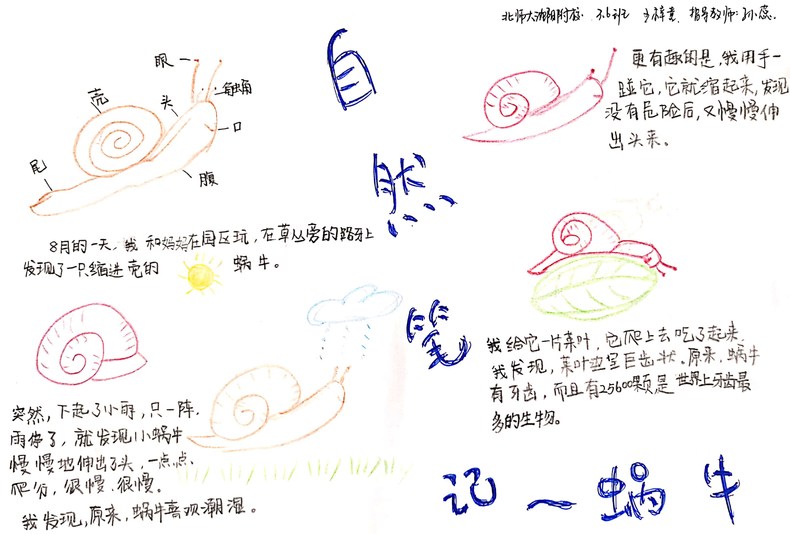 北师大 附校 3.6班 指导教师:孙蕊
自
然
笔
记 ~ 蜗牛
眼
触角
壳
头
口
尾
腹
8月的一天,我和妈妈在园区玩,在草丛旁的路牙上
发现了一只缩进壳的 蜗牛。
突然,下起了小雨,只一阵.
雨停了,就发现小蜗牛
慢慢地伸出了头,一点点
爬行,很慢.很慢。
我发现,原来,蜗牛喜欢潮湿。
更有趣的是,我用手一
碰它,它就缩起来,发现
没有危险后,又慢慢伸
出头来。
我给它一片菜叶,它爬上去吃了起来,
我发现,菜叶 呈巨齿状。原来,蜗牛
有牙齿,而且有25600颗是世界上牙齿最
多的生物。